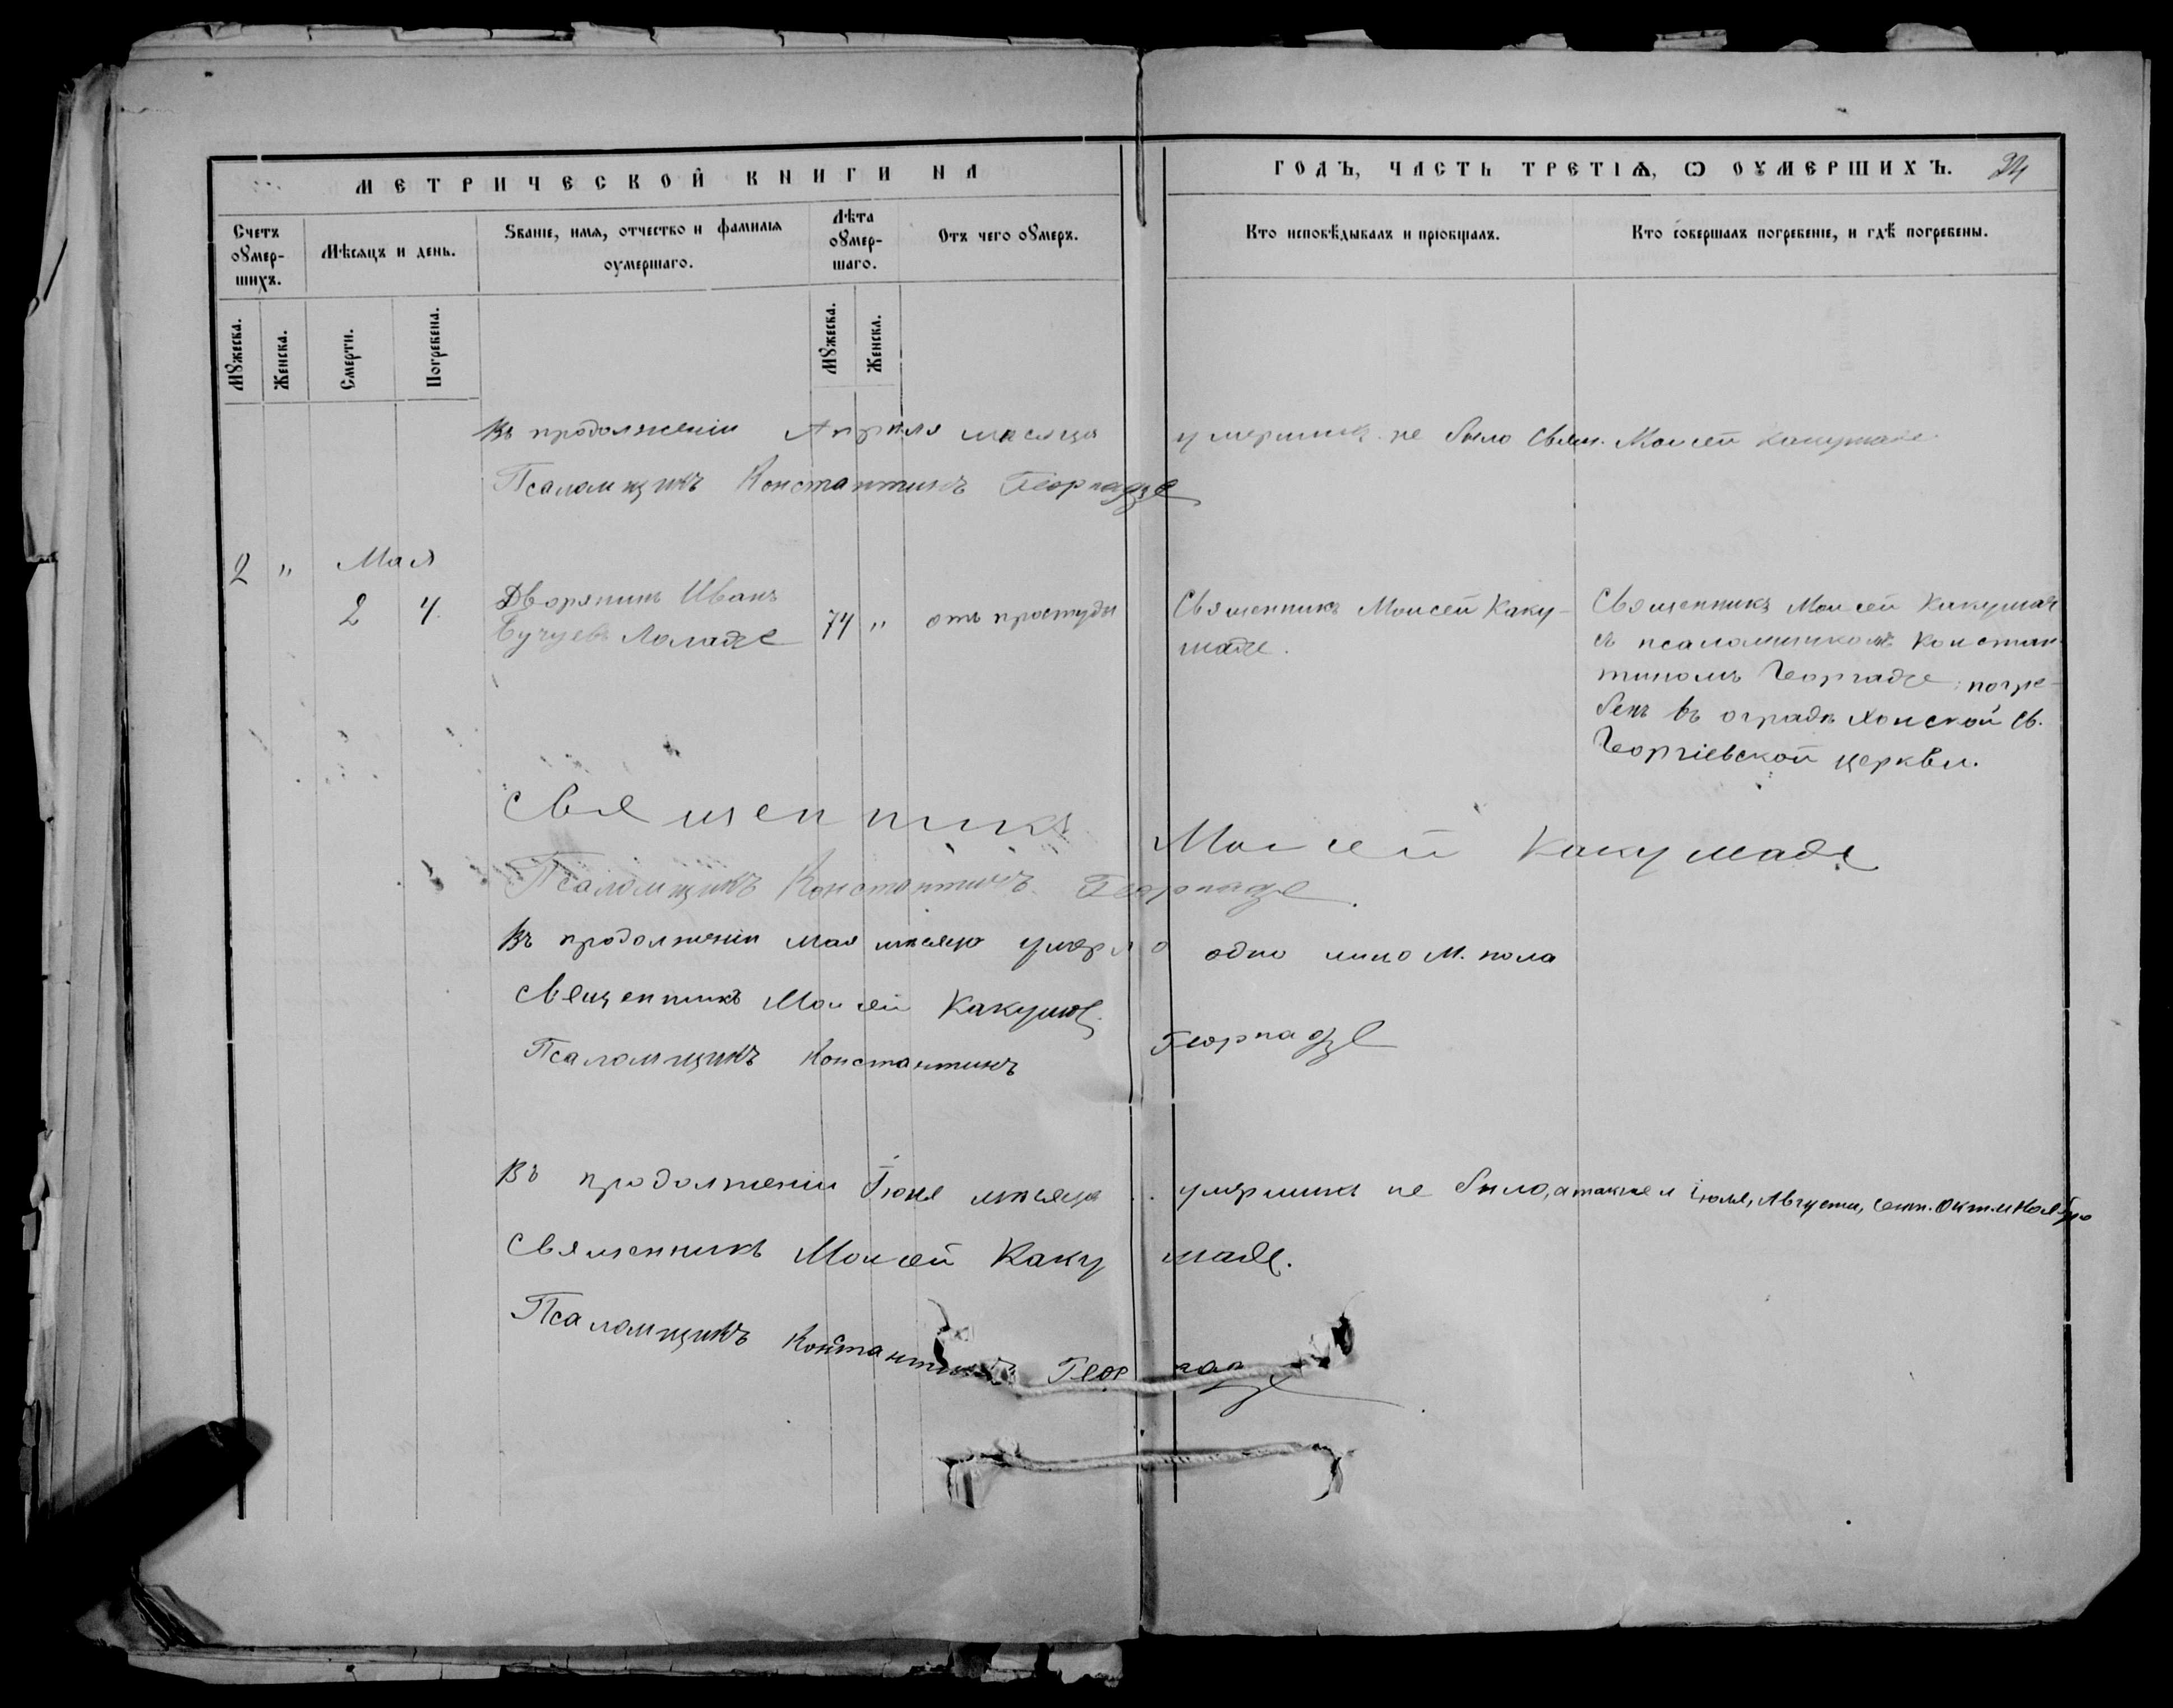 МЕТРИЧЕСКОЙ КНИГИ НА
ГОДЪ, ЧАСТЬ ТРЕТІѦ, Ѡ ОУМЕРШИХЪ.
Счетъ оꙋмер-шихъ.
Мѣсяцъ и день.
Ѕваніе, имя, отчество и фамилія
оумершаго.
Лѣта оꙋмер-шаго.
Отъ чего оꙋмеръ.
Кто исповѣдывалъ и пріобщалъ.
Кто совершалъ погребеніе, и гдѣ погребены.
Мꙋжеска.
Женска.
Смерти.
Погребенія.
Мꙋжеска.
Женска.
Въ продолженіи Апрѣля мѣсяца умершихъ не было Свящ. Моисей Какушадзе
Псаломщикъ Константинъ Георгадзе
2 " Мая
2 4
Дворянинъ Иванъ
Лоладзе
74 " отъ простуды
Священникъ Моисей Каку-
шадзе.
Священникъ Моисей Какушадзе
съ псаломщикомъ Констан-
тиномъ Георгадзе; погре-
бенъ въ оградѣ Хонской Св.
Георгіевской церкви.
Священникъ Моисей Какушадзе
Псаломщикъ Константинъ Георгадзе.
Въ продолженіи мая мѣсяца умерло одно лицо М. пола
Священникъ Моисей Какушадзе
Псаломщикъ Константинъ Георгадзе
Въ продолженіи Іюня мѣсяца умершихъ не было, а также и Іюля, Августа, Сент. Окт. и Ноября
Священникъ Моисей Какушадзе.
Псаломщикъ Константинъ Георгадзе